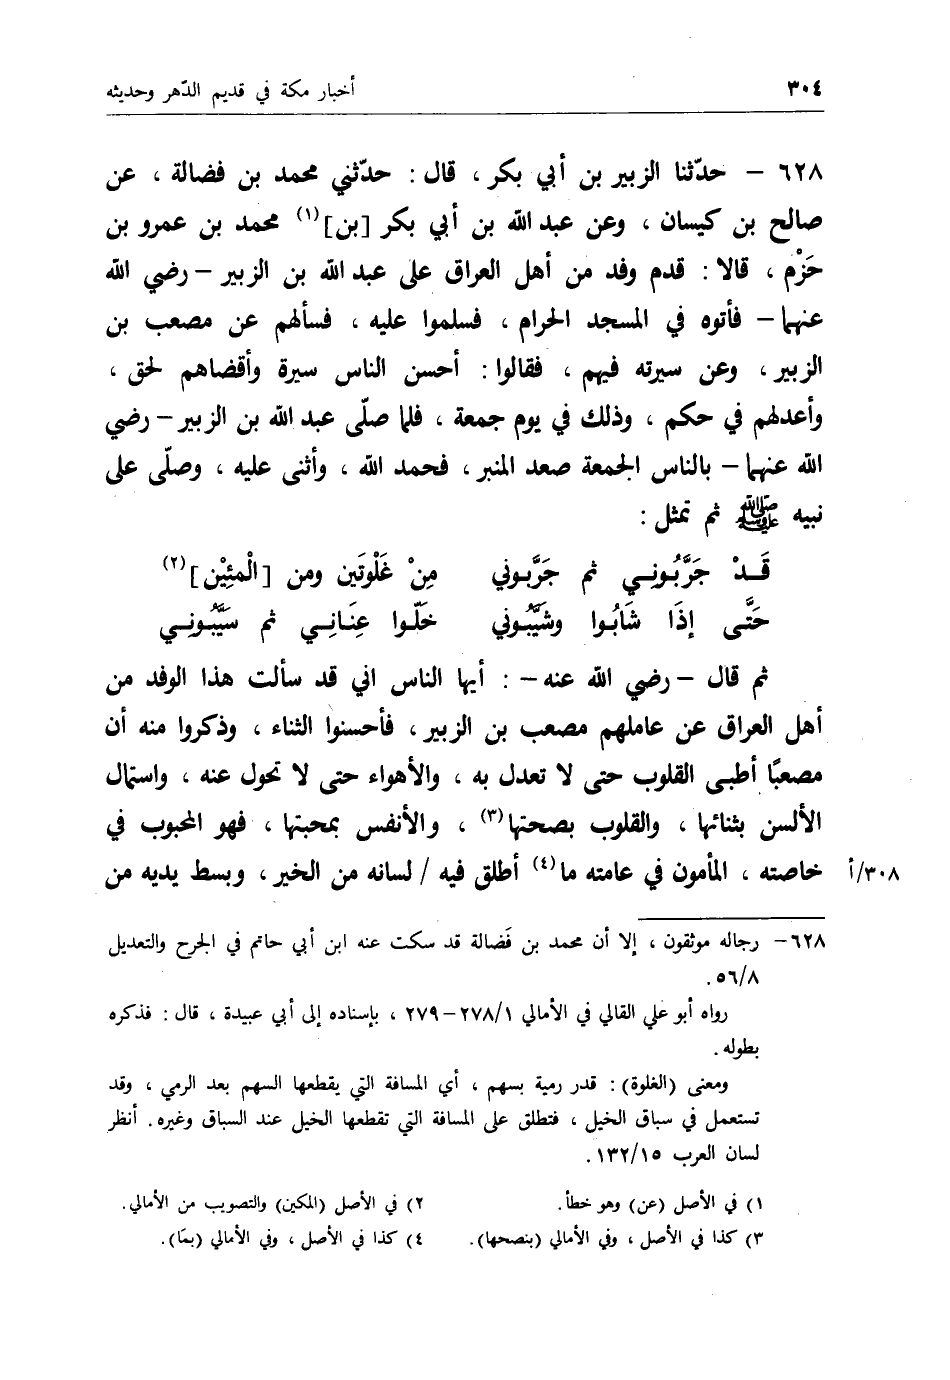 ٣٠٤ أخبار مكة في قديم الدّهر وحديثه
٦٢٨ – حدّثنا الزبير بن أبي بكر ، قال : حدّثني محمد بن فضالة ، عن
صالح بن كيسان ، وعن عبد الله بن أبي بكر [بن](١) محمد بن عمرو بن
حَزْم ، قالا : قدم وفد من أهل العراق على عبد الله بن الزبير – رضي الله
عنهما – فأتوه في المسجد الحرام ، فسلموا عليه ، فسألهم عن مصعب بن
الزبير ، وعن سيرته فيهم ، فقالوا : أحسن الناس سيرة وأقضاهم لحق ،
وأعدلهم في حكم ، وذلك في يوم جمعة ، فلما صلّى عبد الله بن الزبير – رضي
الله عنهما – بالناس الجمعة صعد المنبر ، فحمد الله ، وأثنى عليه ، وصلّى على
نبيه ﷺ ثم تمثل :
قَـدْ جَرَّبُونِـي ثم جَرَّبـوني مِنْ غَلْوَتَين ومن [الْمئِيْن](٢)
حَتَّـى إذَا شَابُـوا وشَيَّبُـوني خَلّـوا عِنَـانِـي ثم سَيَّبُونِـي
ثم قال – رضي الله عنه – : أيها الناس اني قد سألت هذا الوفد من
أهل العراق عن عاملهم مصعب بن الزبير ، فأحسنوا الثناء ، وذكروا منه أن
مصعبًا أطبـى القلوب حتى لا تعدل به ، والأهواء حتى لا تحول عنه ، واستمال
الألسن بثنائها ، والقلوب بصحتها(٣) ، والأنفس بمحبتها ، فهو المحبوب في
٣٠٨/أ خاصته ، المأمون في عامته ما(٤) أطلق فيه / لسانه من الخير ، وبسط يديه من
٦٢٨– رجاله موثقون ، إلا أن محمد بن فَضالة قد سكت عنه ابن أبي حاتم في الجرح والتعديل
٥٦/٨ .
رواه أبو علي القالي في الأمالي ٢٧٨/١–٢٧٩ ، بإسناده إلى أبي عبيدة ، قال : فذكره
بطوله .
ومعنى (الغلوة) : قدر رمية بسهم ، أي المسافة التي يقطعها السهم بعد الرمي ، وقد
تستعمل في سباق الخيل ، فتطلق على المسافة التي تقطعها الخيل عند السباق وغيره . أنظر
لسان العرب ١٣٢/١٥ .
١) في الأصل (عن) وهو خطأ. ٢) في الأصل (المكين) والتصويب من الأمالي.
٣) كذا في الأصل ، وفي الأمالي (بنصحها). ٤) كذا في الأصل ، وفي الأمالي (بمَا).